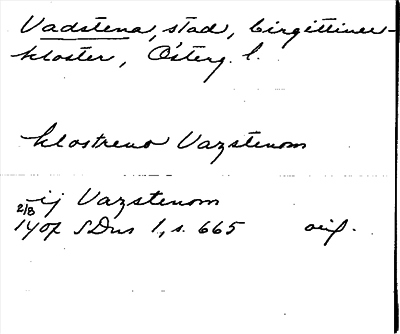 Vadstena, stad, birgittiner-
kloster, Österg. l.
klostreno Vazstenom
ij Vazstenom
2/8
1407 SDns 1, s. 665 orig.